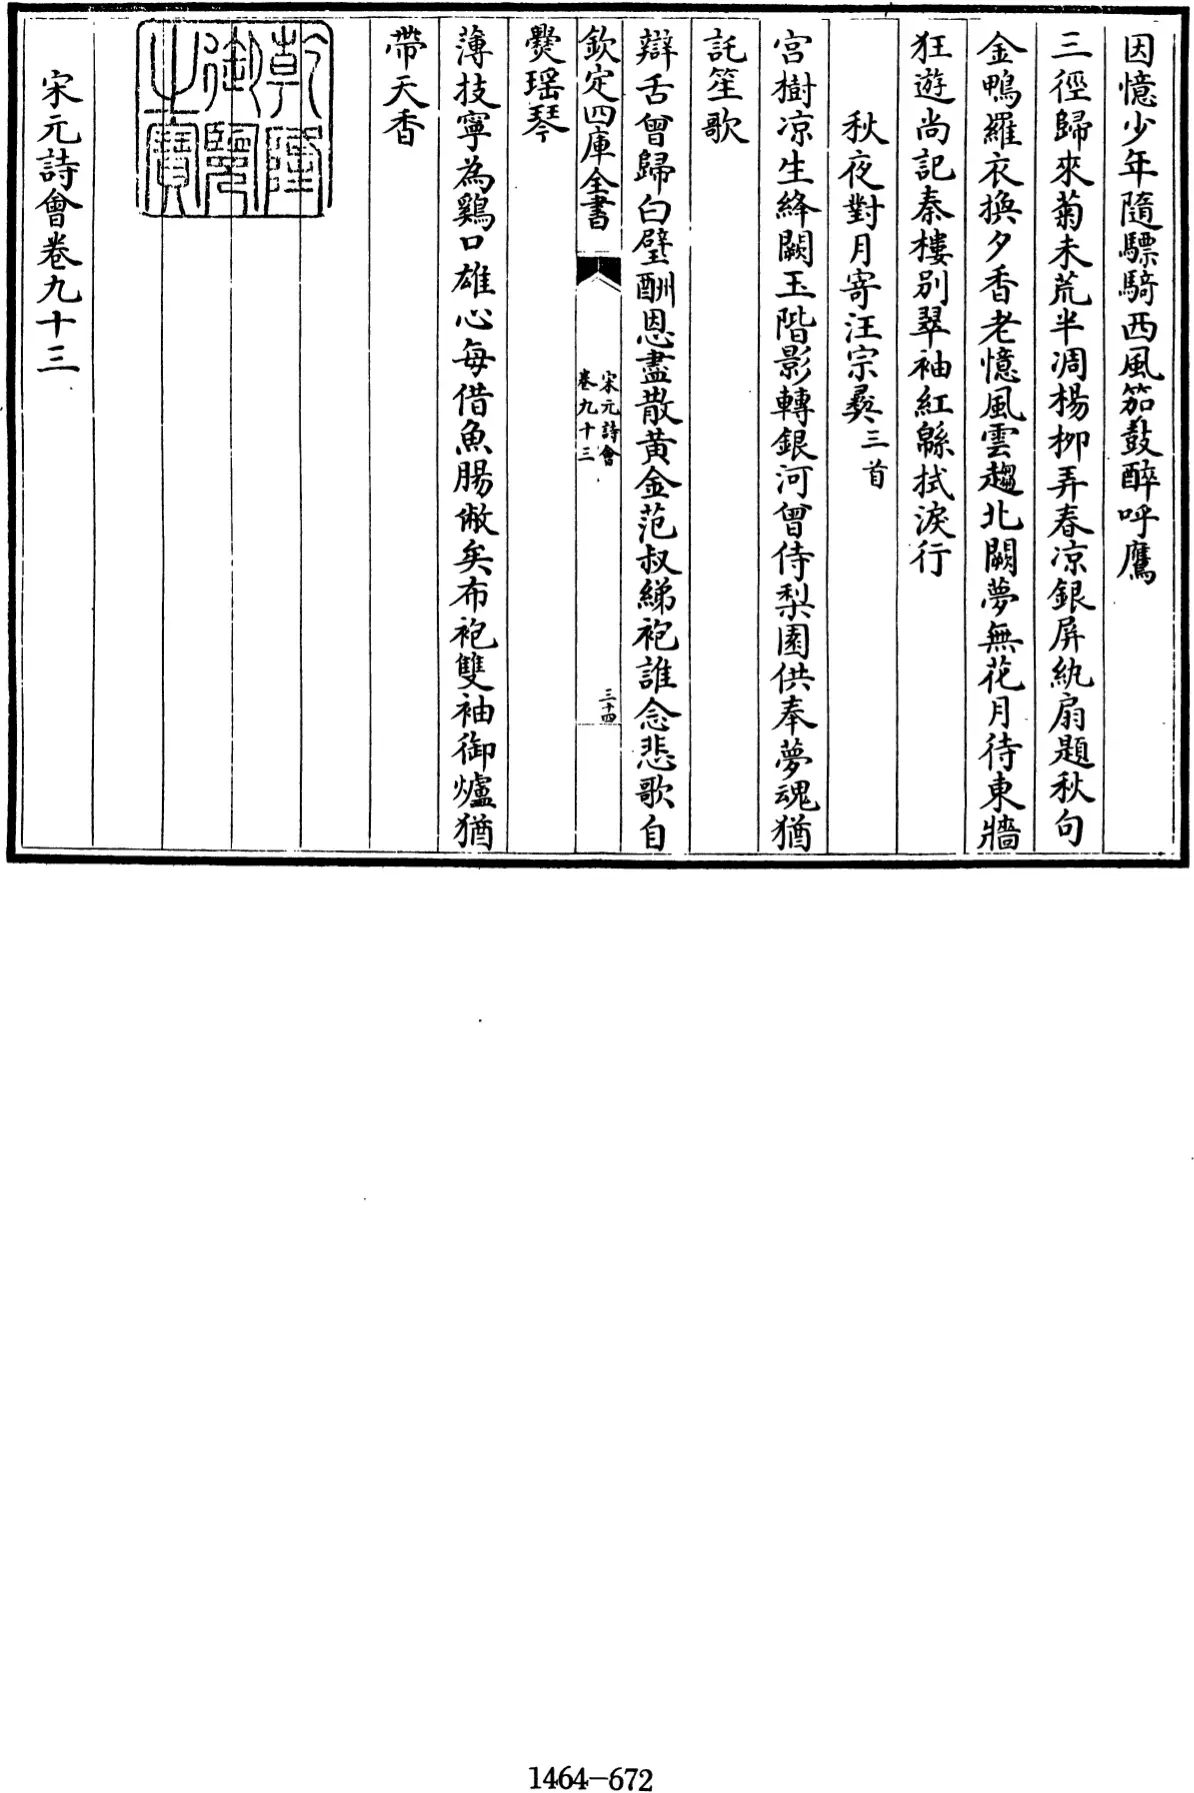 因憶少年隨驃騎西風笳鼓醉呼鷹
三徑歸來菊未荒半凋楊栁弄春凉銀屏紈扇題秋句
金鴨羅衣換夕香老憶風雲趨北闕夢無花月待東牆
狂遊尚記秦樓别翠袖紅緜拭淚行
秋夜對月寄汪宗彛三首
宫樹凉生絳闕玉階影轉銀河曾侍梨園供奉夢魂猶
託笙歌
辯舌曾歸白璧酬恩盡散黄金范叔綈袍誰念悲歌自
欽定四庫全書
宋元詩會
卷九十三
三十四
爨瑶琴
薄技寧為鷄口雄心每借魚腸敝矣布袍雙袖御爐猶
帶天香
乾隆
御覽
之寶
宋元詩會卷九十三
1464-672